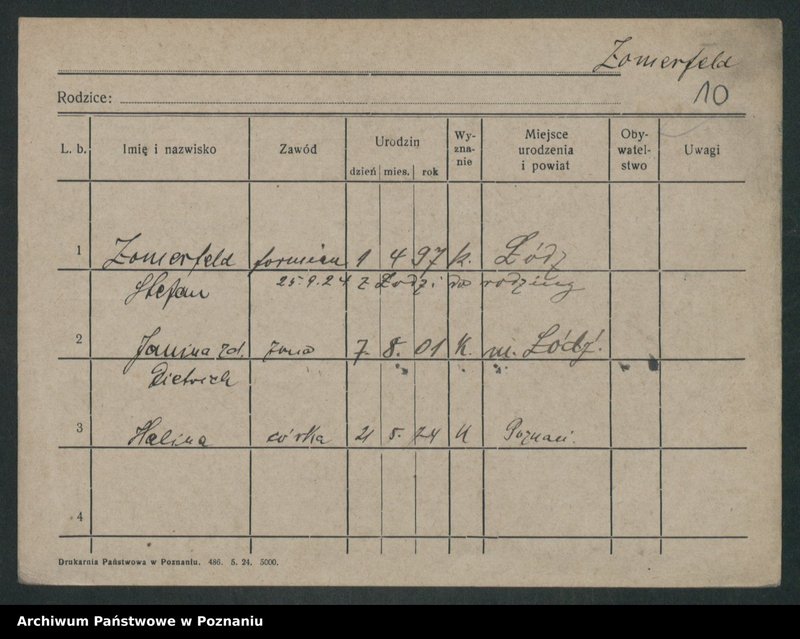 Zomerfeld
Rodzice:
10
L. b. Imię i nazwisko Zawód Urodzin Wy-zna-nie Miejsce urodzenia i powiat Oby-watel-stwo Uwagi
dzień mies. rok
1 Zomerfeld 1 4 97 k. Łódź
Stefan 25.9.24 z Łodzi do rodziny
2 Janina zd. żona 7. 8. 01 k. m. Łódź.
Dietrich
3 Halina córka 21 5. 24 k Poznań.
4
Drukarnia Państwowa w Poznaniu. 486. 5. 24. 5000.
Archiwum Państwowe w Poznaniu